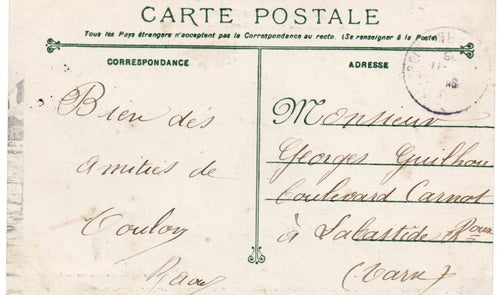 CARTE POSTALE
Tous les Pays étrangers n'acceptent pas la Correspondance au recto. (Se renseigner à la Poste)
CORRESPONDANCE
Bien des
amitiés de
Toulon
Raoul
ADRESSE
Monsieur
Georges Guilhou
boulevard Carnot
à Labastide Roux
(Tarn)